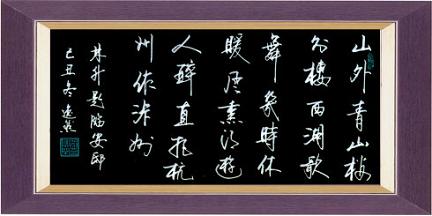 山外青山楼
外楼西湖歌
舞幾時休
暖風熏得遊
人醉直把杭
州作汴州
林升題临安邸
己丑冬